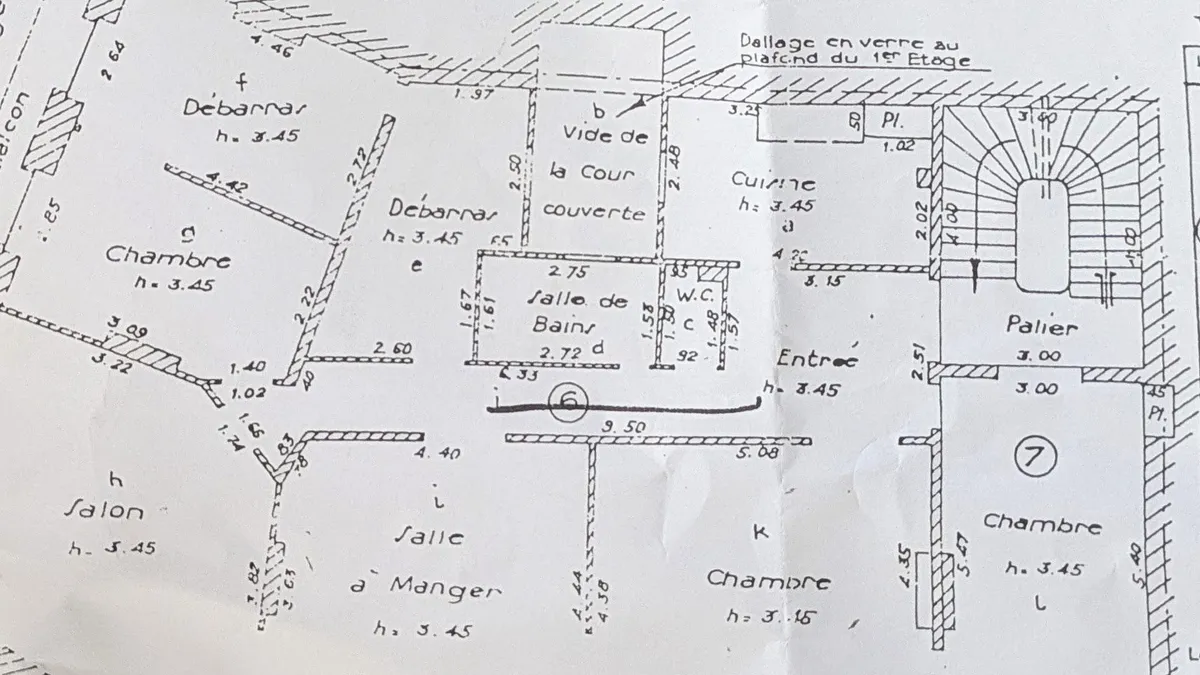 Dallage en verre au
plafond du 1er Etage
4.46
2.64
1.97
3.25
50
Pl.
1.02
3.40
f
Débarras
h= 3.45
b
Vide de
la Cour
couverte
2.50
2.48
2.72
4.42
Cuisine
h= 3.45
a
2.02
4.00
4.00
Débarras
h= 3.45
e
65
g
Chambre
h= 3.45
.85
2.75
93
3.15
W.C.
c
92
1.48
1.57
1.67
1.61
Salle de
Bains
d
1.53
2.72
Palier
3.00
3.00
2.51
Entrée
h= 3.45
2.22
3.09
3.22
2.60
1.40
1.02
40
.33
j
6
9.50
45
Pl.
1.66
1.74
83
78
4.40
5.08
7
h
Salon
h- 3.45
i
Salle
à Manger
h= 3.45
K
Chambre
h= 3.15
Chambre
h= 3.45
l
3.82
3.63
4.44
4.38
4.35
5.47
5.40